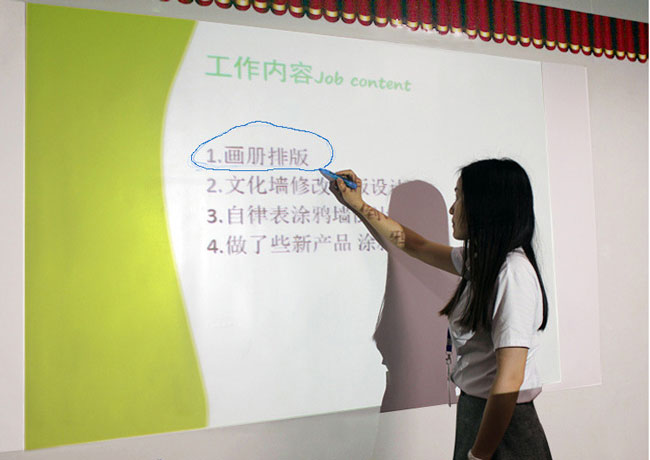 工作内容Job content
1.画册排版
2.文化墙修改 版设计
3.自律表涂鸦墙
4.做了些新产品 涂